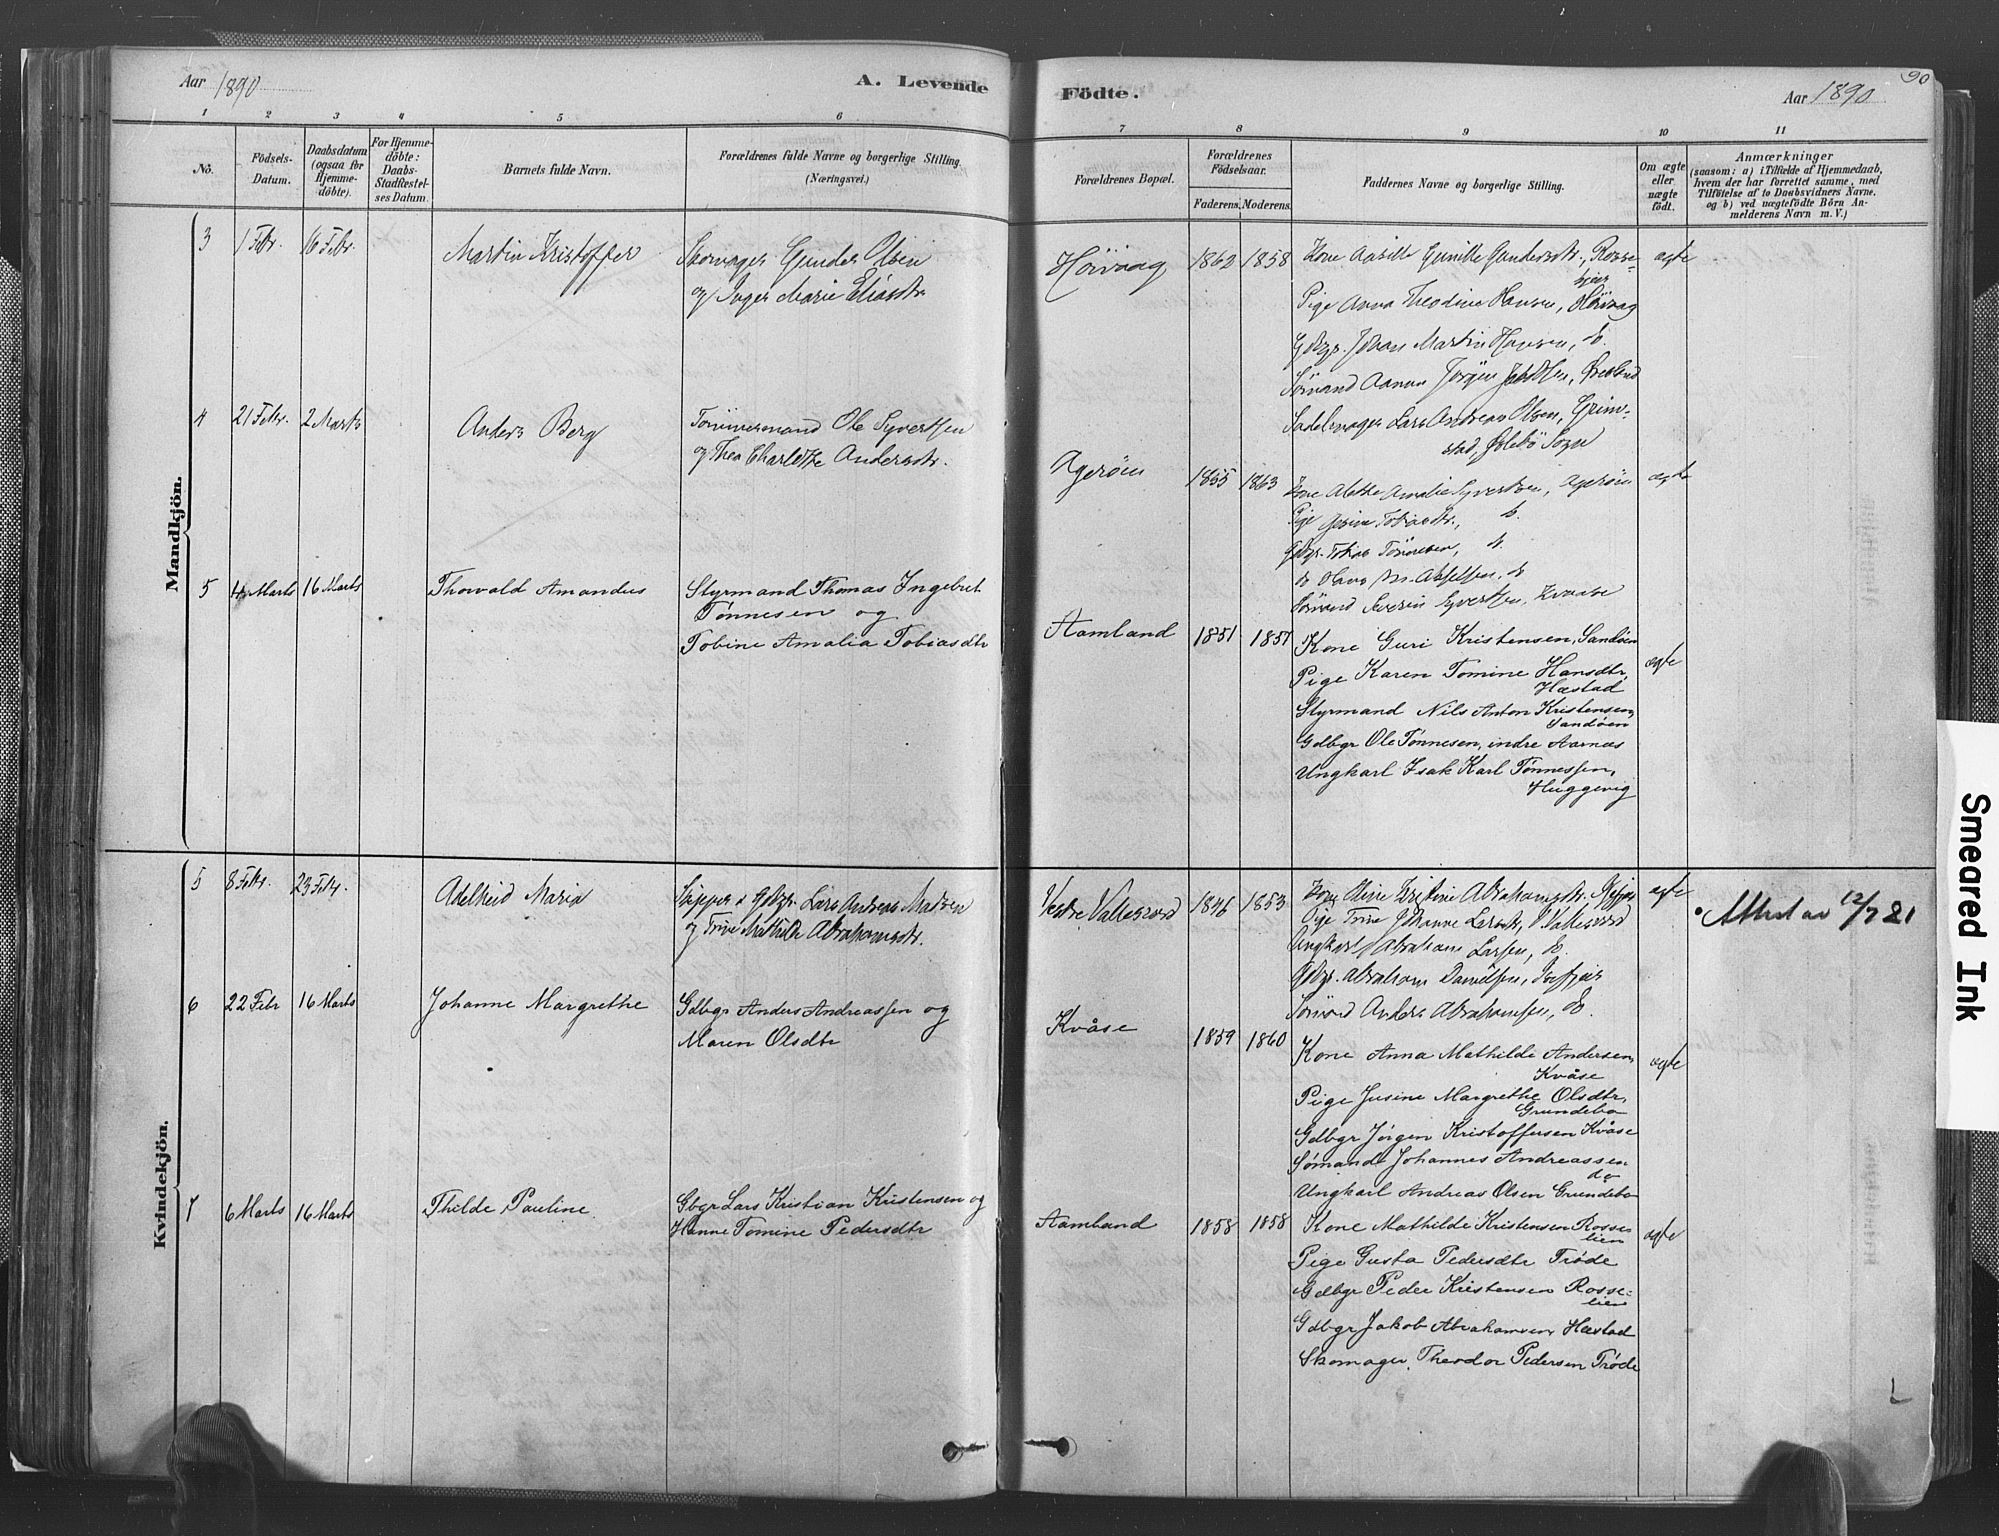 Aar 1890
A. Levende
Födte.
Aar 1890
90
1 2 3 4 5 6 7 8 9 10 11
No.
Födsels-
Datum.
Daabsdatum
(ogsaa for
Hjemme-
döbte).
For Hjemme-
döbte:
Daabs-
Stadfæstel-
ses Datum.
Barnets fulde Navn.
Forældrenes fulde Navne og borgerlige Stilling.
(Næringsvei.)
Forældrenes Bopæl.
Forældrenes
Födselsaar.
Faderens. Moderens.
Faddernes Navne og borgerlige Stilling.
Om ægte
eller
uægte
födt.
Anmærkninger
(saasom: a) i Tilfælde af Hjemmedaab,
hvem der har forrettet samme, med
Tilföielse af to Daabsvidners Navne.
og b) ved uægtefödte Börn An-
melderens Navn m. V.)
Mandkjön.
3 1 Febr. 16 Febr. Martin Kristoffer
Gunder Olsen
og Inger Marie Eliasdtr
Höivaag 1862 1858
Kone Gundersdtr., Rosse-
Pige Anna Theodine Hansen, Höivaag
Gdbgr. Johan Martin Hansen, do.
Sömand Jörgen
Lars Andreas Olsen, Grim-
stad, Sogn
ægte
4 21 Febr. 2 Marts Anders Berg
Tömmermand Ole Syvertsen
og Thea Charlotte Andersdtr.
Ageröen 1855 1863
Kone Alethe Amalie Syvertsen, Ageröen
Pige Tobiasdtr., do.
Gdbgr. Tobias Tönnesen, do.
do Akselsen, do
Sömand Severin Syvertsen, Kvaase
ægte
5 4 Marts 16 Marts Thorvald Amandus
Styrmand Thomas Ingebret
Tønnesen og
Tobine Amalia Tobiasdtr
Aamland 1851 1857
Kone Guri Kristensen, Sandøen
Pige Karen Tomine Hansdtr,
Hæstad
Styrmand Nils Anton Kristensen,
Sandøen
Gdbgr Ole Tønnesen, indre Aarnæs
Ungkarl Isak Karl Tønnessen,
Huggevig
ægte
Kvindekjön.
5 8 Febr. 23 Febr. Adelheid Maria
Skipper & Gdbgr. Lars Andreas Madsen
og Trine Mathilde Abrahamsdtr.
Vestre Vallesværd 1846 1853
Kone Kristine Abrahamsdtr.
Pige Trine Johanne Larsdtr, V Vallesværd
Ungkarl Abraham Larsen, do.
Gdbgr. Abraham Danielsen,
Sömd Anders Abrahamsen, do.
ægte
Attest av 12/7 21
6 22 Febr 16 Marts Johanne Margrethe
Gdbgr Anders Andreassen og
Maren Olsdtr
Kvåse 1859 1860
Kone Anna Mathilde Andersen,
Kvåse
Pige Jusine Margrethe Olsdtr,
Grundebo
Gdbgr Jørgen Kristoffersen Kvåse
Sømand Johannes Andreassen
do
Ungkarl Andreas Olsen Grundebo
ægte
7 6 Marts 16 Marts Thilde Pauline
Gbgr Lars Kristian Kristensen og
Hanne Tomine Pedersdtr
Aamland 1858 1858
Kone Mathilde Kristensen Rosse-
lien
Pige Gusta Pedersdtr Trøde
Gdbgr Peder Kristensen Rosse-
lien
Gdbgr Jakob Abrahamsen Hæstad
Skomager Theodor Pedersen Trøde
ægte
Smeared Ink